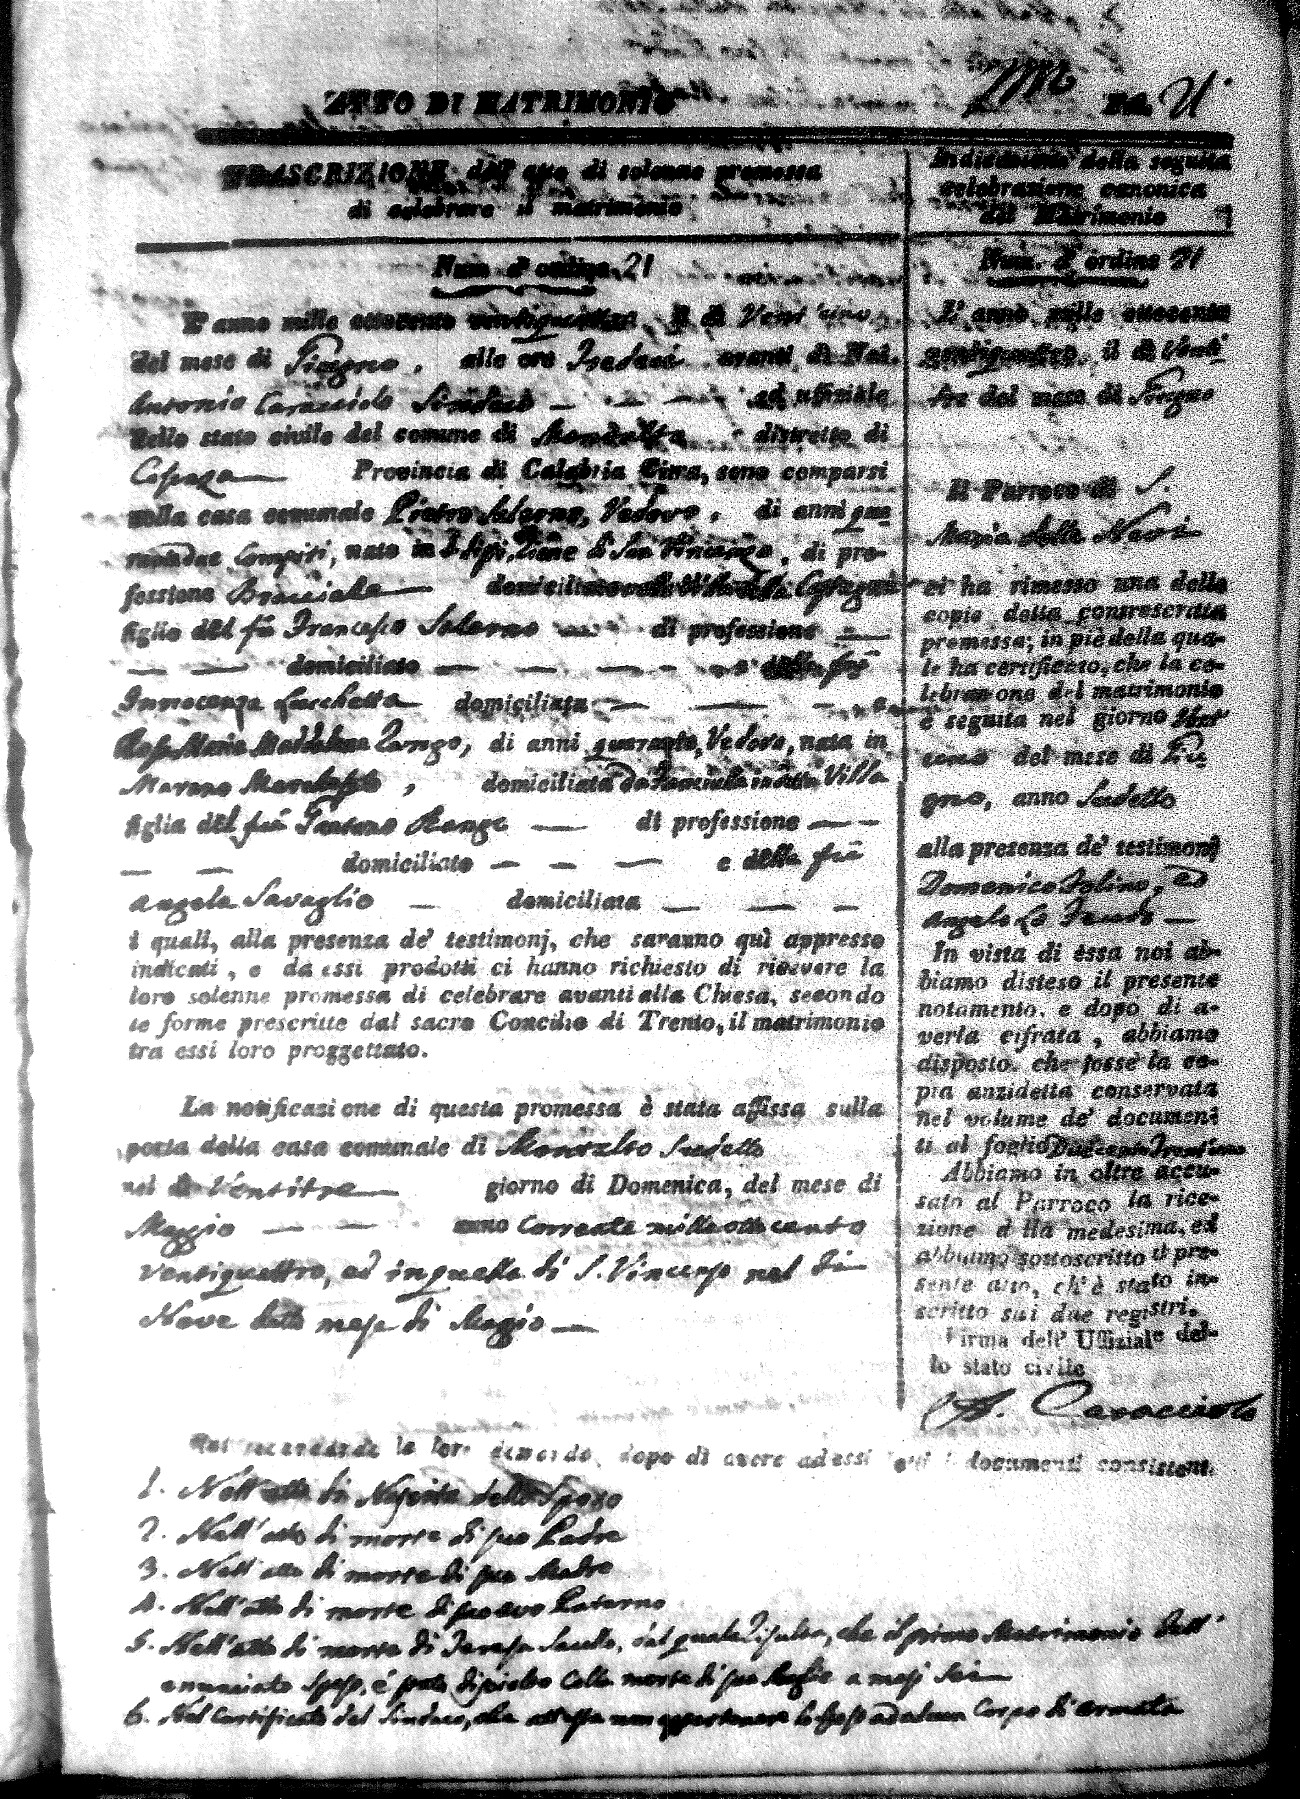 ATTO DI MATRIMONIO
TRASCRIZIONE dell' atto di solenne promessa
di celebrare il matrimonio
Num. d' ordine 21
L' anno mille ottocento ventiquattro il dì Vent'uno
del mese di Giugno, alle ore avanti di Noi
Antonio Caracciolo Sindaco ed uffiziale
dello stato civile del comune di Montalto distretto di
Cosenza Provincia di Calabria Citra, sono comparsi
nella casa comunale Pietro Salerno, Vedovo, di anni qua
rantadue compiti, nato in di San Vincenzo, di pro-
fessione Bracciale domiciliato
figlio del fù Francesco Salerno di professione
domiciliato e della fù
Innocenza Lucchetta domiciliata e
Rosa Maria Maddalena Rango, di anni quaranta, Vedova, nata in
Marano Marchesato, domiciliata in detta Villa
figlia del fù Gaetano Rango di professione
domiciliato e della fù
Angela Savaglio domiciliata
i quali, alla presenza de' testimonj, che saranno quì appresso
indicati, e da essi prodotti ci hanno richiesto di ricevere la
loro solenne promessa di celebrare avanti alla Chiesa, secondo
le forme prescritte dal sacro Concilio di Trento, il matrimonio
tra essi loro proggettato.
La notificazione di questa promessa è stata affissa sulla
porta della casa comunale di Montalto sudetto
nel dì Ventitre giorno di Domenica, del mese di
Maggio anno corrente mille ottocento
ventiquattro, ed in quella di S. Vincenzo nel dì
Nove detto mese di Maggio
Indicazione della seguita
celebrazione canonica
del Matrimonio
Num. d' ordine 21
L' anno mille ottocento
ventiquattro il dì Venti
tre del mese di Giugno
Il Parroco di S.
Maria della Nevi
ci ha rimesso una delle
copie della contrascritta
promessa; in piè della qua-
le ha certificato, che la ce-
lebrazione del matrimonio
è seguita nel giorno Vent'
uno del mese di Giu
gno, anno sudetto
alla presenza de' testimonj
Domenico Folino, ed
Angelo Lo
In vista di essa noi ab-
biamo disteso il presente
notamento, e dopo di a-
verla cifrata, abbiamo
disposto, che fosse la co-
pia anzidetta conservata
nel volume de' documen-
ti al foglio Duecento Trentuno
Abbiamo in oltre accu-
sato al Parroco la rice-
zione della medesima, ed
abbiamo sottoscritto il pre-
sente atto, ch' è stato in-
scritto sui due registri.
Firma dell' Uffiziale del-
lo stato civile
A. Caracciolo
Noi secondando la loro domanda, dopo di avere ad essi i documenti consistenti
1. Nell'atto di Nascita dello Sposo
2. Nell'atto di morte di suo Padre
3. Nell'atto di morte di sua Madre
4. Nell'atto di morte di suo avo Paterno
5. Nell'atto di morte di Teresa, dal quale risulta, che il primo Matrimonio dell'
enunciato Sposo, è stato disciolto colla morte di sua Moglie a mesi sei
6. Nel Certificato del Sindaco, che attesta non appartenere lo Sposo ad alcun Corpo di armata